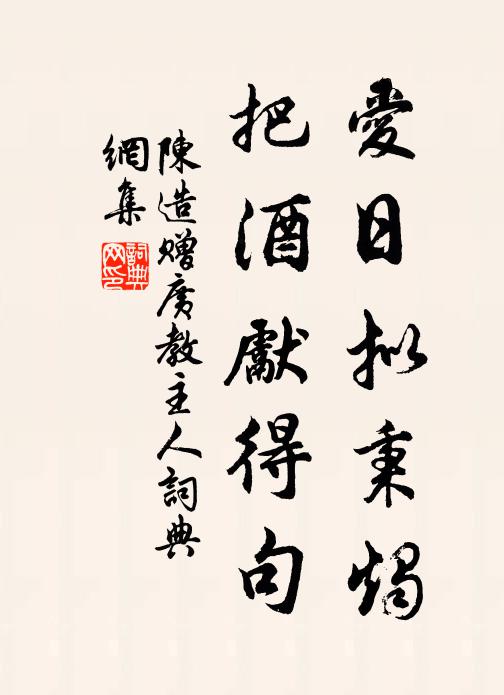 愛日拟秉燭
把酒獻得句
陳造贈廣教主人詞典
網集
詞典
网印